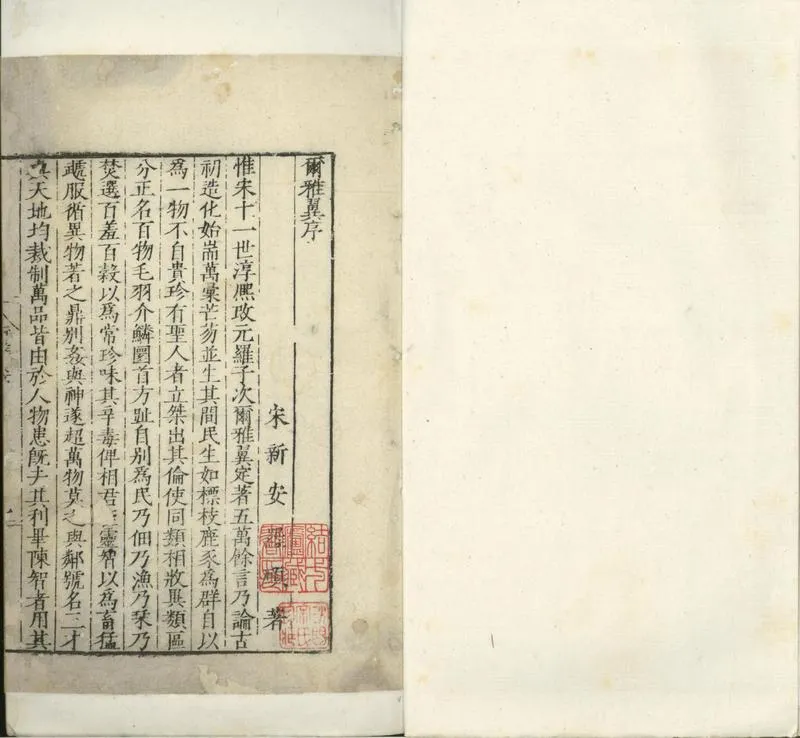 爾雅翼序
宋新安羅願著
惟宋十一世淳熙改元羅子次爾雅翼定著五萬餘言乃論古
初造化始耑萬彙芒芴並生其間民生如標枝鹿豕為群自以
為一物不自貴珍有聖人者立桀出其倫使同類相收異類區
分正名百物毛羽介鱗圓首方趾自別為民乃佃乃漁乃琹乃
焚選百羞百穀以為常珍味其辛毒俾相君臣靈智以為畜猛
虣服循異物著之鼎別姦與神遂超萬物莫之與鄰號名三才
與天地均裁制萬品皆由於人物患旣去其利畢陳智者用其